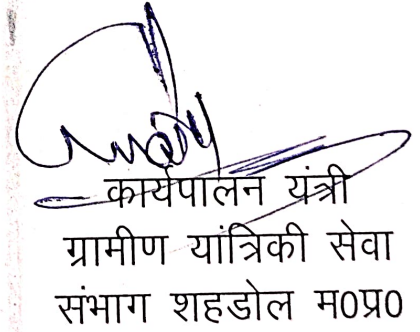 कार्यपालन यंत्री
ग्रामीण यांत्रिकी सेवा
संभाग शहडोल म0प्र0